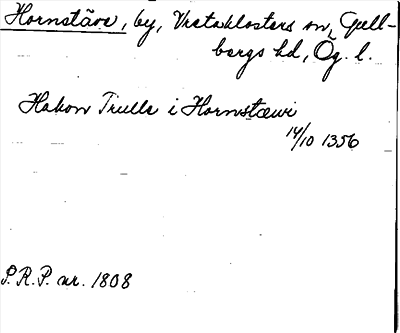 Hornstäve, by, Vretaklosters sn, Gull-
bergs hd, Ög. l.
Hakon Trulls i Hornstæwi
14/10 1356
P.R.P. nr. 1808